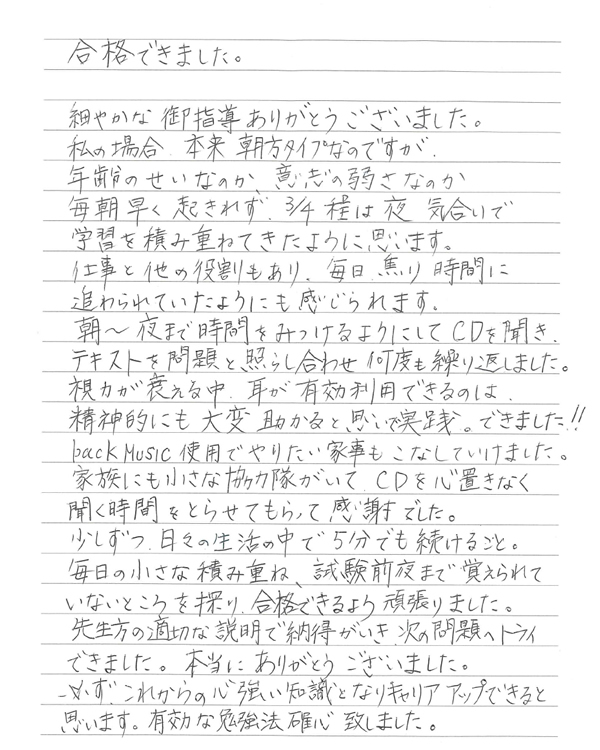 合格できました。
細やかな御指導ありがとうございました。
私の場合、本来朝方タイプなのですが、
年齢のせいなのか、意志の弱さなのか
毎朝早く起きれず、3/4程は夜気合いで
学習を積み重ねてきたように思います。
仕事と他の役割もあり、毎日、焦り時間に
追わられていたようにも感じられます。
朝〜夜まで時間をみつけるようにしてCDを聞き、
テキストを問題と照らし合わせ何度も繰り返しました。
視力が衰える中、耳が有効利用できるのは、
精神的にも大変助かると思いで実践。できました!!
back Music使用でやりたい家事もこなしていけました。
家族にも小さな協力隊がいて、CDを心置きなく
聞く時間をとらせてもらって感謝でした。
少しずつ、日々の生活の中で5分でも続けること。
毎日の小さな積み重ね、試験前夜まで覚えられて
いないところを探り、合格できるよう頑張りました。
先生方の適切な説明で納得がいき、次の問題へトライ
できました。本当にありがとうございました。
必ず、これからの心強い知識となりキャリアアップできると
思います。有効な勉強法確心致しました。